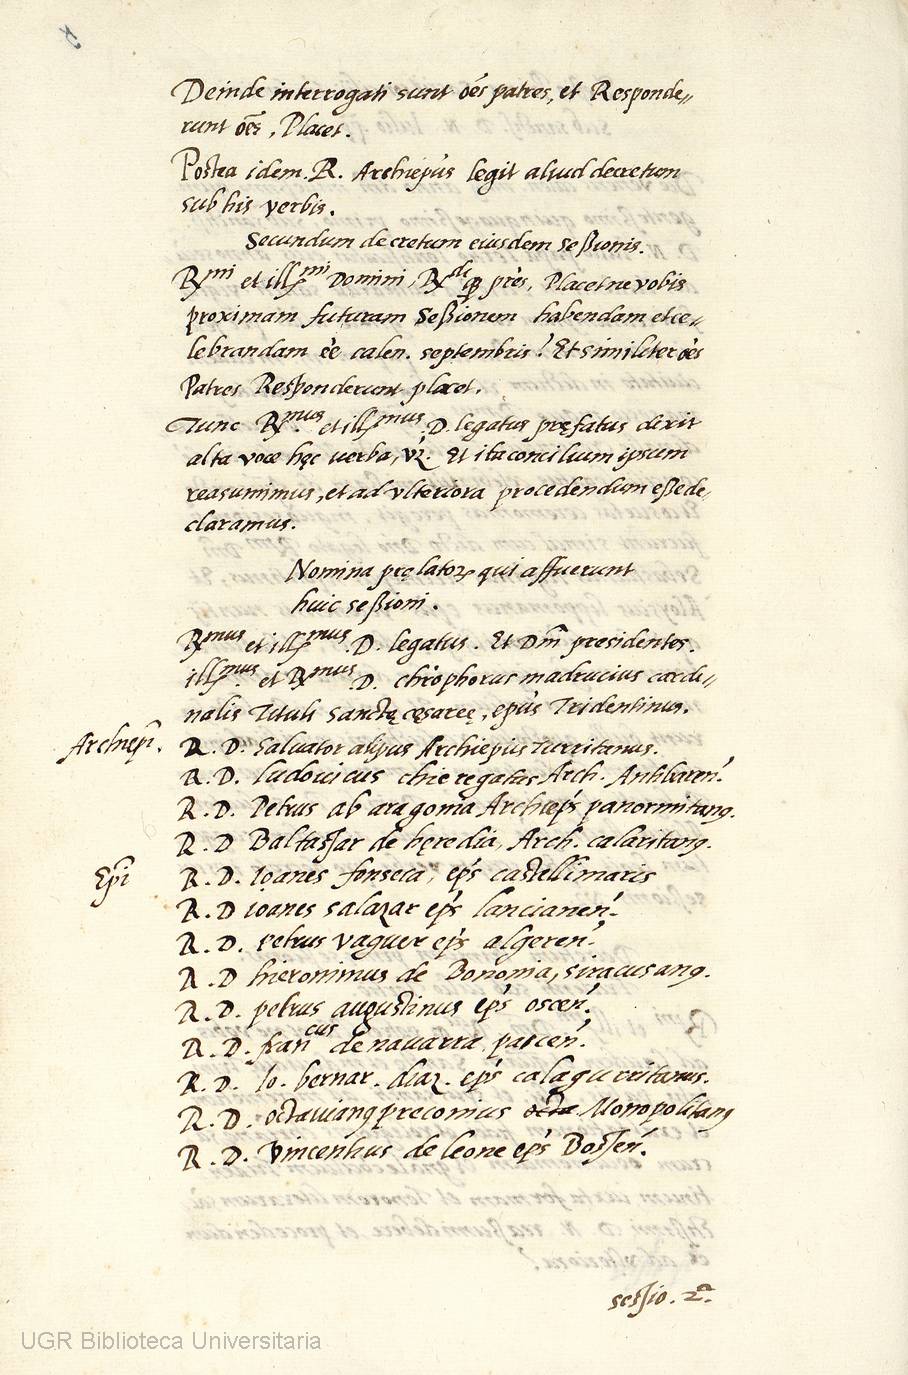 Deinde interrogati sunt oẽs patres, et Responde„
runt oẽs, Placet.
Postea idem. R. Archiep̃us legit aliud decretum
sub his verbis.
Secundum decretum eiusdem seßionis.
Rmi et illmi Domini, Rdi q̃ p̃res, Placet ne vobis
proximam futuram Seßionem habendam et ce„
lebrandam ẽe calen. septembris? Et similiter oẽs
Patres Responderunt placet.
Tunc Rmus et illmus D. legatus pręfatus dixit
alta voce hęc uerba, vz. Et ita concilium ipsum
reasumimus, et ad vlteriora procedendum eße de„
claramus.
Nomina prelatoꝝ qui affuerunt
huic seßioni.
Rmus et illmus .D. legatus. Et Dñi presidentes.
illmus et Rmus .D. chrõphorus madrucius cardi„
nalis Tituli Sanctę cęsareę, ep̃us Tridentinus.
Archiep̃i.
R. D. Salvator alipus Archiep̃us Turritanus.
R. D. Ludovicus chieregatus Arch. Antibaren̄.
R. D. Petrus ab aragonia Archiep̃s panormitanꝰ.
R. D Baltassar de hęredia, Arch. calaritanꝰ.
Ep̃i
R. D. Ioanes fonseca, ep̃s castellimaris
R. D ioanes salazar ep̃s lancianen̄.
R. D. Petrus vaguer ep̃s algeren̄.
R. D hieronimus de Bononia, siracusanꝰ.
R. D. petrus augustinus ep̃s oscen̄.
R. D. francus de nauarra pacen̄.
R. D. Io. bernar. diaz. ep̃s calagurritanus.
R. D. octauianꝰ preconius octa Monopolitanꝰ
R. D. Vincentius de leone ep̃s Bossen̄.
sessio. 2a.
UGR Biblioteca Universitaria